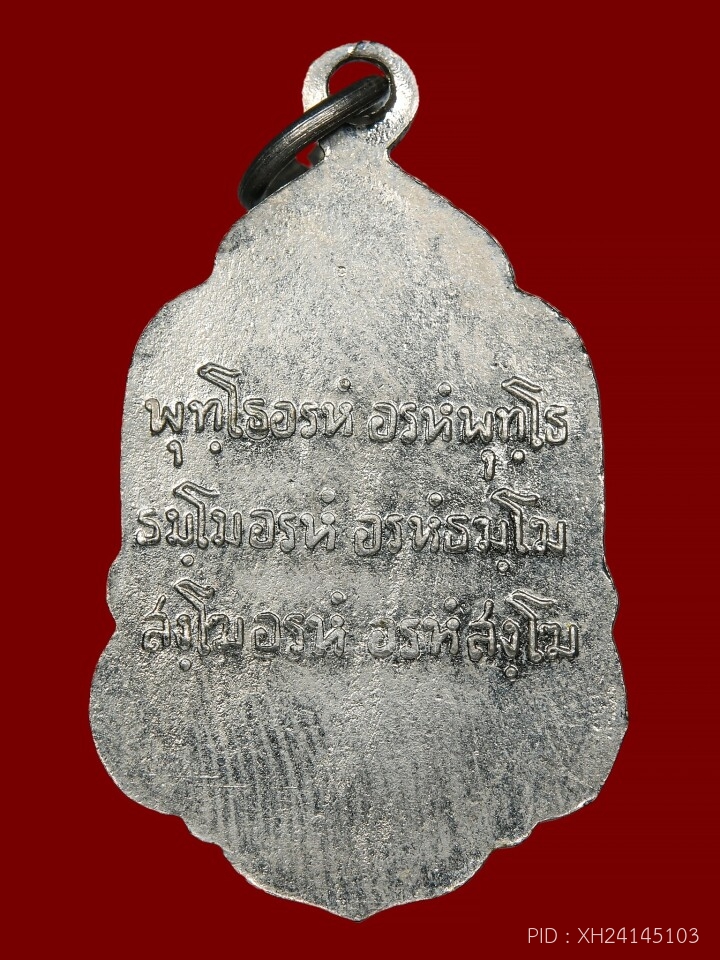 พุทฺโธอรหํ อรหํพุทฺโธ
ธมฺโมอรหํ อรหํธมฺโม
สงฺโฆอรหํ อรหํสงฺโฆ
PID : XH24145103